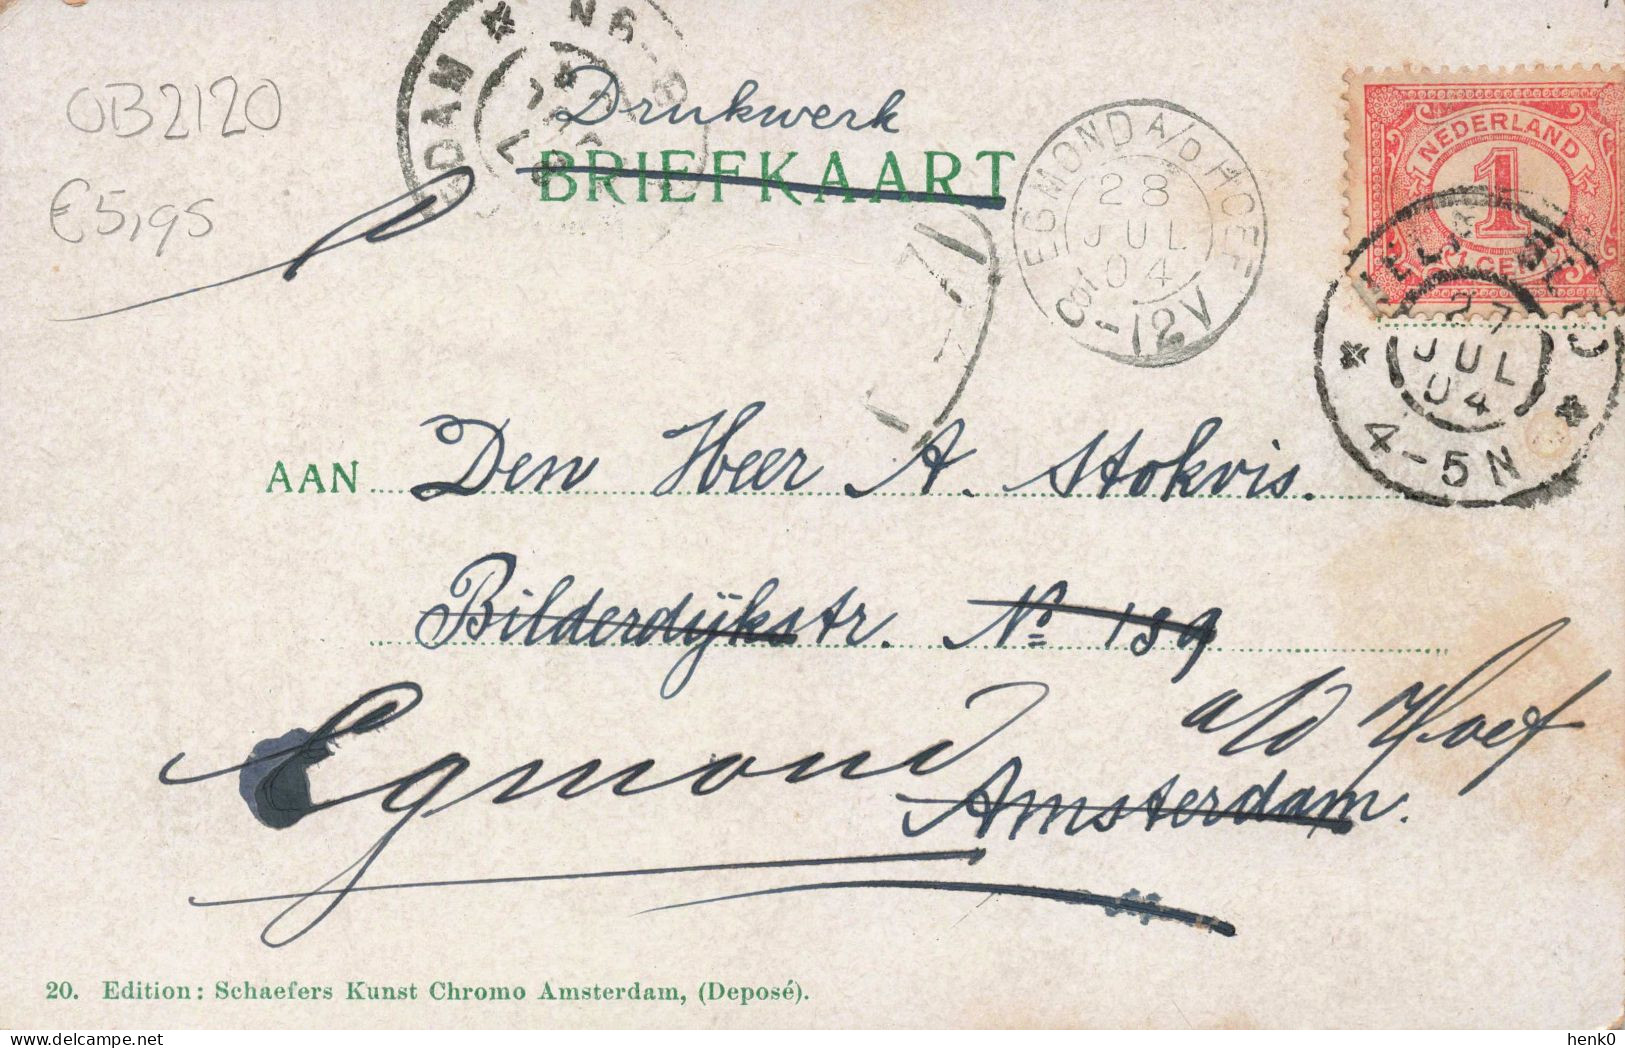 OB2120
€5,95
Drukwerk
BRIEFKAART
DAM
EGMOND A/D HOEF
28
JUL
04
8-12V
NEDERLAND
1
1 CENT
27
JUL
04
4-5N
AAN Den Heer A. Stokvis.
Bilderdijkstr. No 139
Egmond a/d Hoef
Amsterdam.
20. Edition: Schaefers Kunst Chromo Amsterdam, (Deposé).
henk0